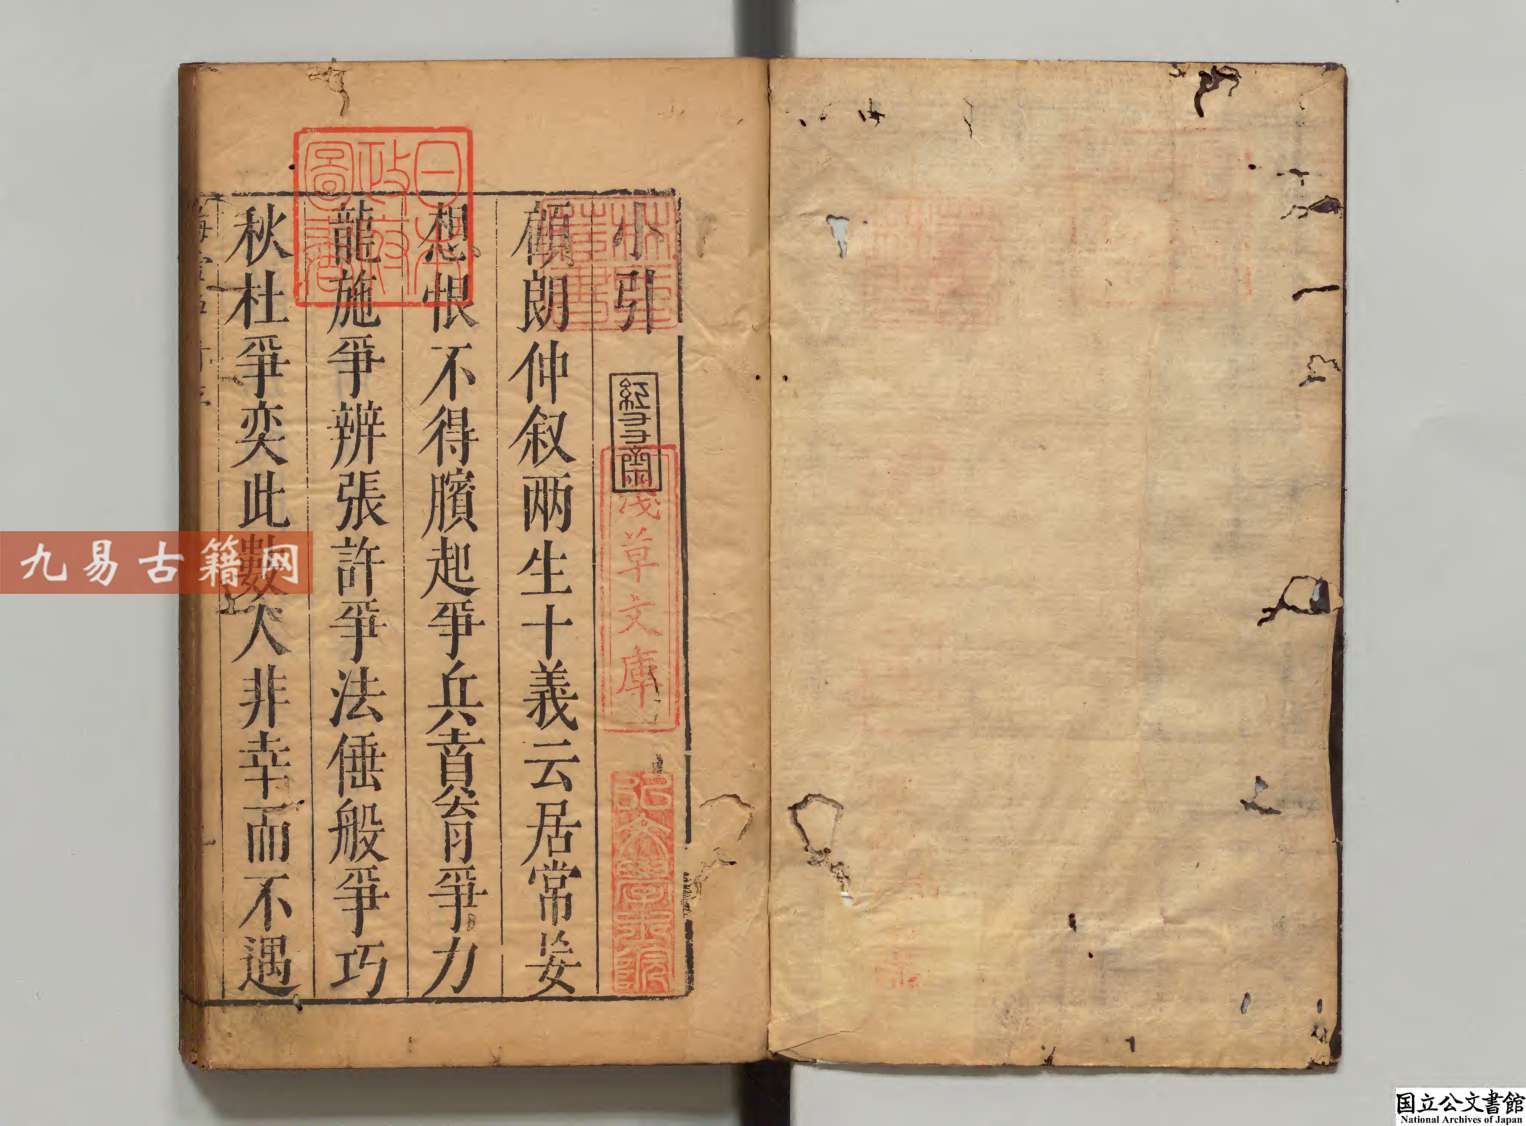 小引
顧朗仲叙两生十義云居常妄
想恨不得臏起爭兵賁育爭力
龍施爭辨張許爭法倕般爭巧
秋杜爭奕此數人非幸而不遇
日本
政府
圖書
林氏
藏書
淺草文庫
九易古籍网
国立公文書館
National Archives of Japan